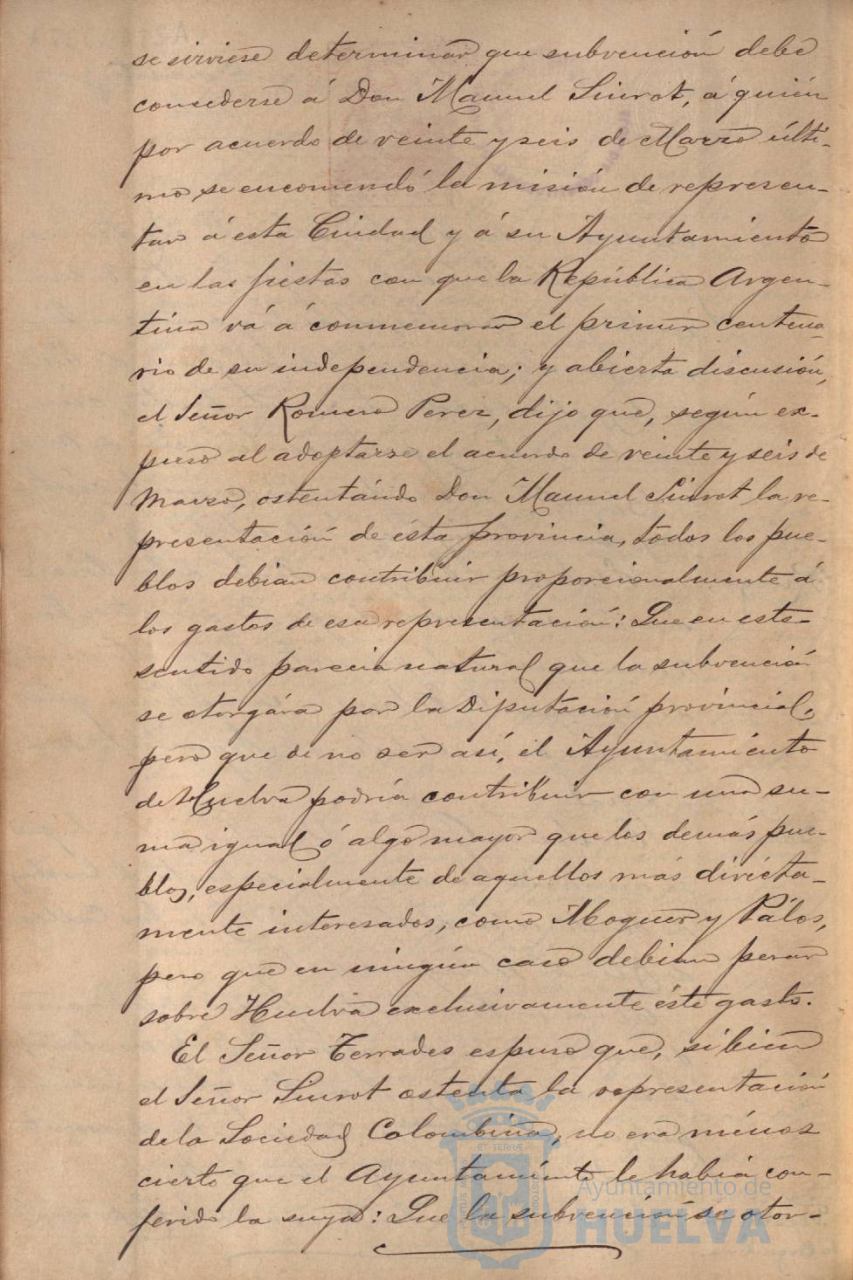 se sirviese determinar que subvención debe
concederse á Don Manuel Siurot, á quién
por acuerdo de veinte y seis de Marzo últi-
mo se encomendó la misión de represen-
tar á esta Ciudad y á su Ayuntamiento
en las fiestas con que la República Argen-
tina vá á conmemorar el primer centena-
rio de su independencia; y abierta discusión,
el Señor Romero Perez, dijo que, según ex-
puso al adoptarse el acuerdo de veinte y seis de
Marzo, ostentándo Don Manuel Siurot la re-
presentación de ésta provincia, todos los pue-
blos debian contribuir proporcionalmente á
los gastos de esa representación: Que en este
sentido parecia natural que la subvención
se otorgára por la Diputación provincial,
pero que de no ser así, el Ayuntamiento
de Huelva podría contribuir con una su-
ma igual ó algo mayor que los demás pue-
blos, especialmente de aquellos más dirécta-
mente interesados, como Moguer y Pálos,
pero que en ningún caso debian pesar
sobre Huelva exclusivamente éste gasto.
El Señor Terrades espuso que, si bien
el Señor Siurot ostenta la representación
de la Sociedad Colombina, no era ménos
cierto que el Ayuntamiento le habia con-
ferido la suya: Que la subvención se otor-
Ayuntamiento de
HUELVA